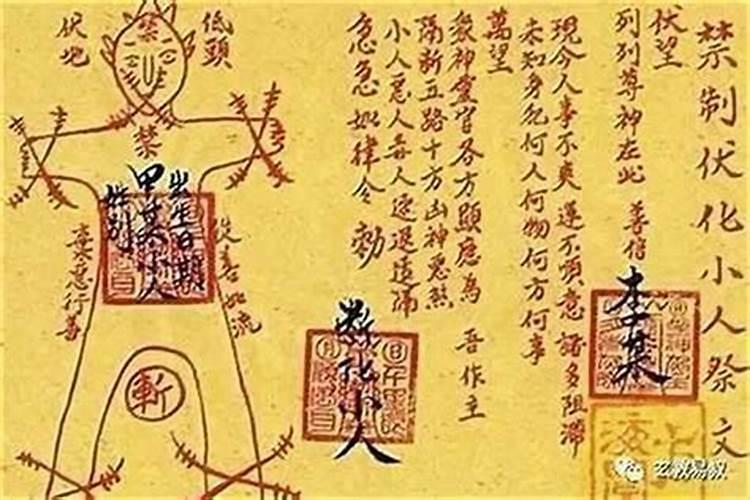 禁制伏化小人祭文
伏望
列列尊神在此 善信 李某
現今人事不爽 運不順意 諸多阻滯
未知身犯何人何物何方何事
萬望
眾神靈官各方顯應為 吾作主
隔斬五路十方凶神惡煞
小人惡人毒人速退遠
急急如律令 勅
化小人
低頭
伏地
禁
禁
出生日期
甲某小人
性別
從善如流
棄惡行善
斬